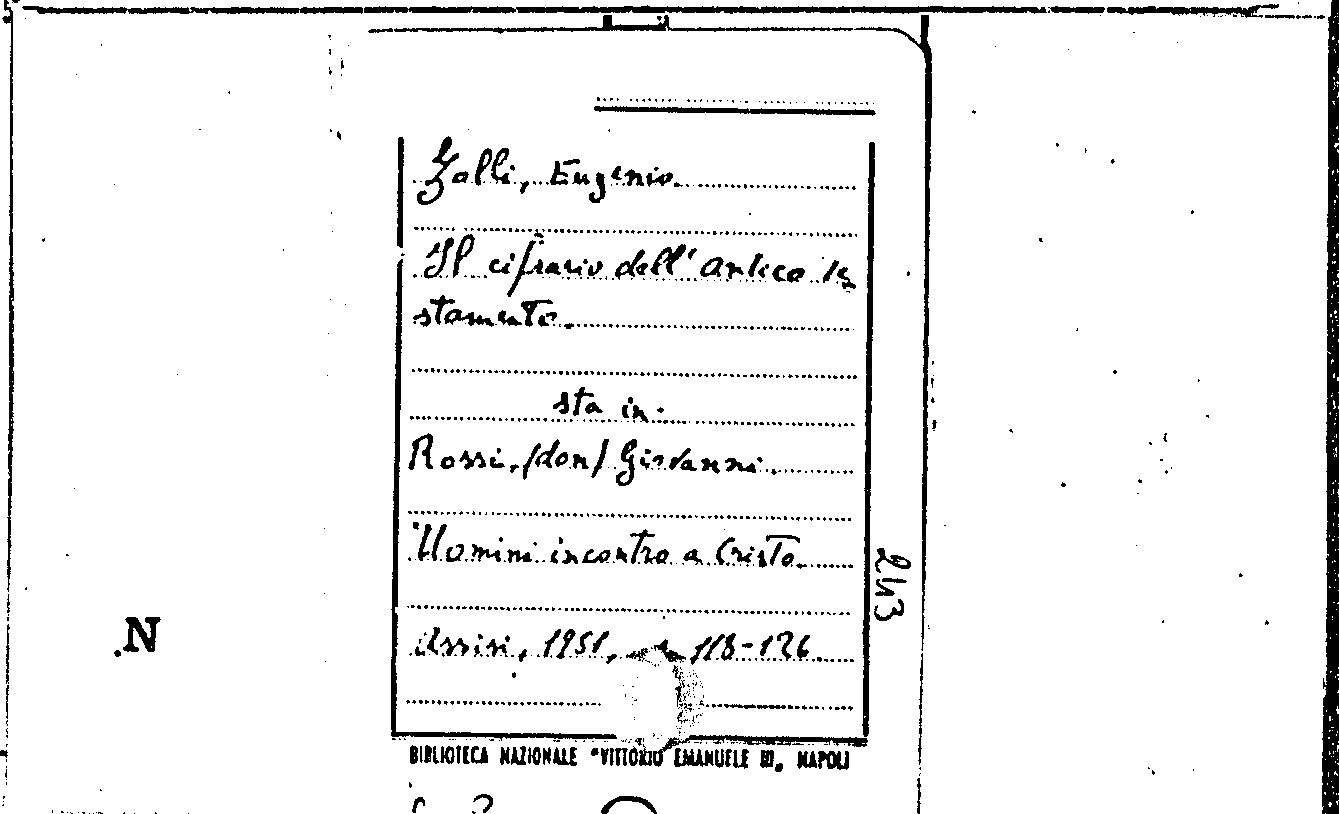 Zolli, Eugenio.
Il cifrario dell'antico te
stamento.
sta in:
Rossi, (don) Giovanni.
Uomini incontro a Cristo.
Assisi, 1951, 118-126.
243
N
BIBLIOTECA NAZIONALE "VITTORIO EMANUELE III„ NAPOLI